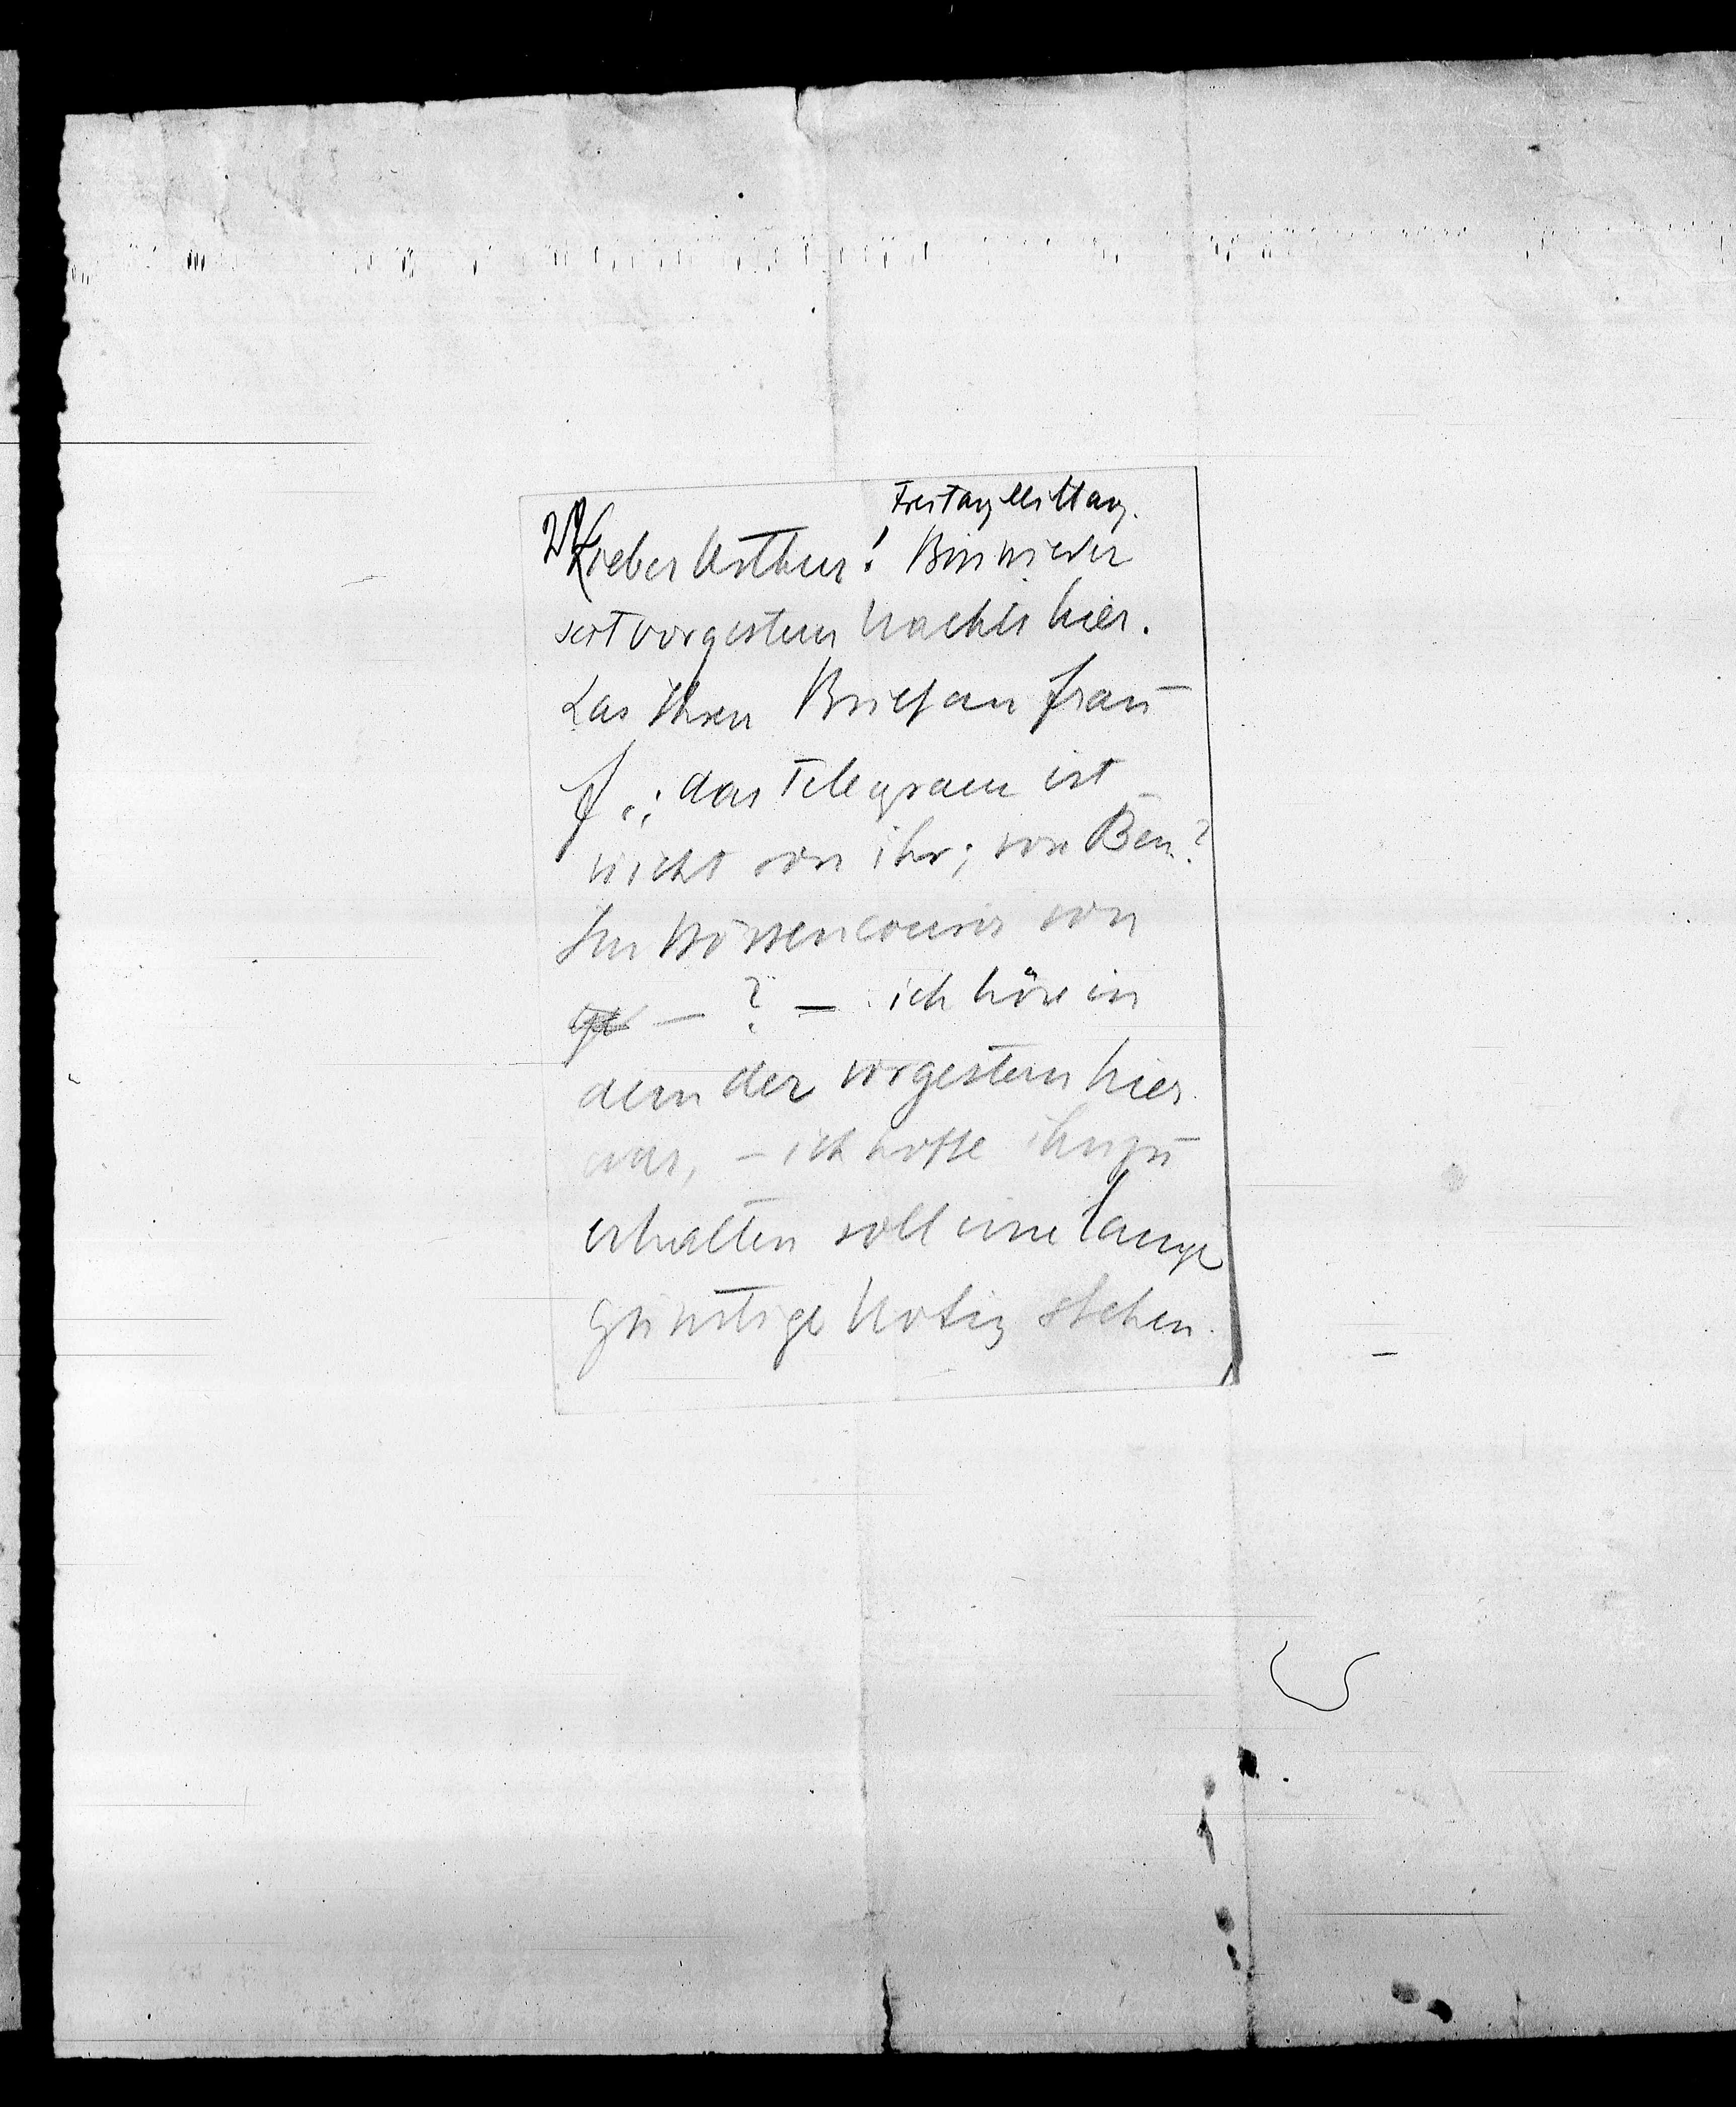 Freitag Mittag.
Lieber Arthur! Bin wieder
seit vorgestern Nachts hier.
Las Ihren Brief an Frau
f.; das Telegram ist
nicht von ihr; von Bēn?
Im Börsencourier von
— ? — ich höre in
dem der vorgestern hier
war, — ich hoffe ihn zu
erhalten soll eine lange
günstige Notiz stehen.